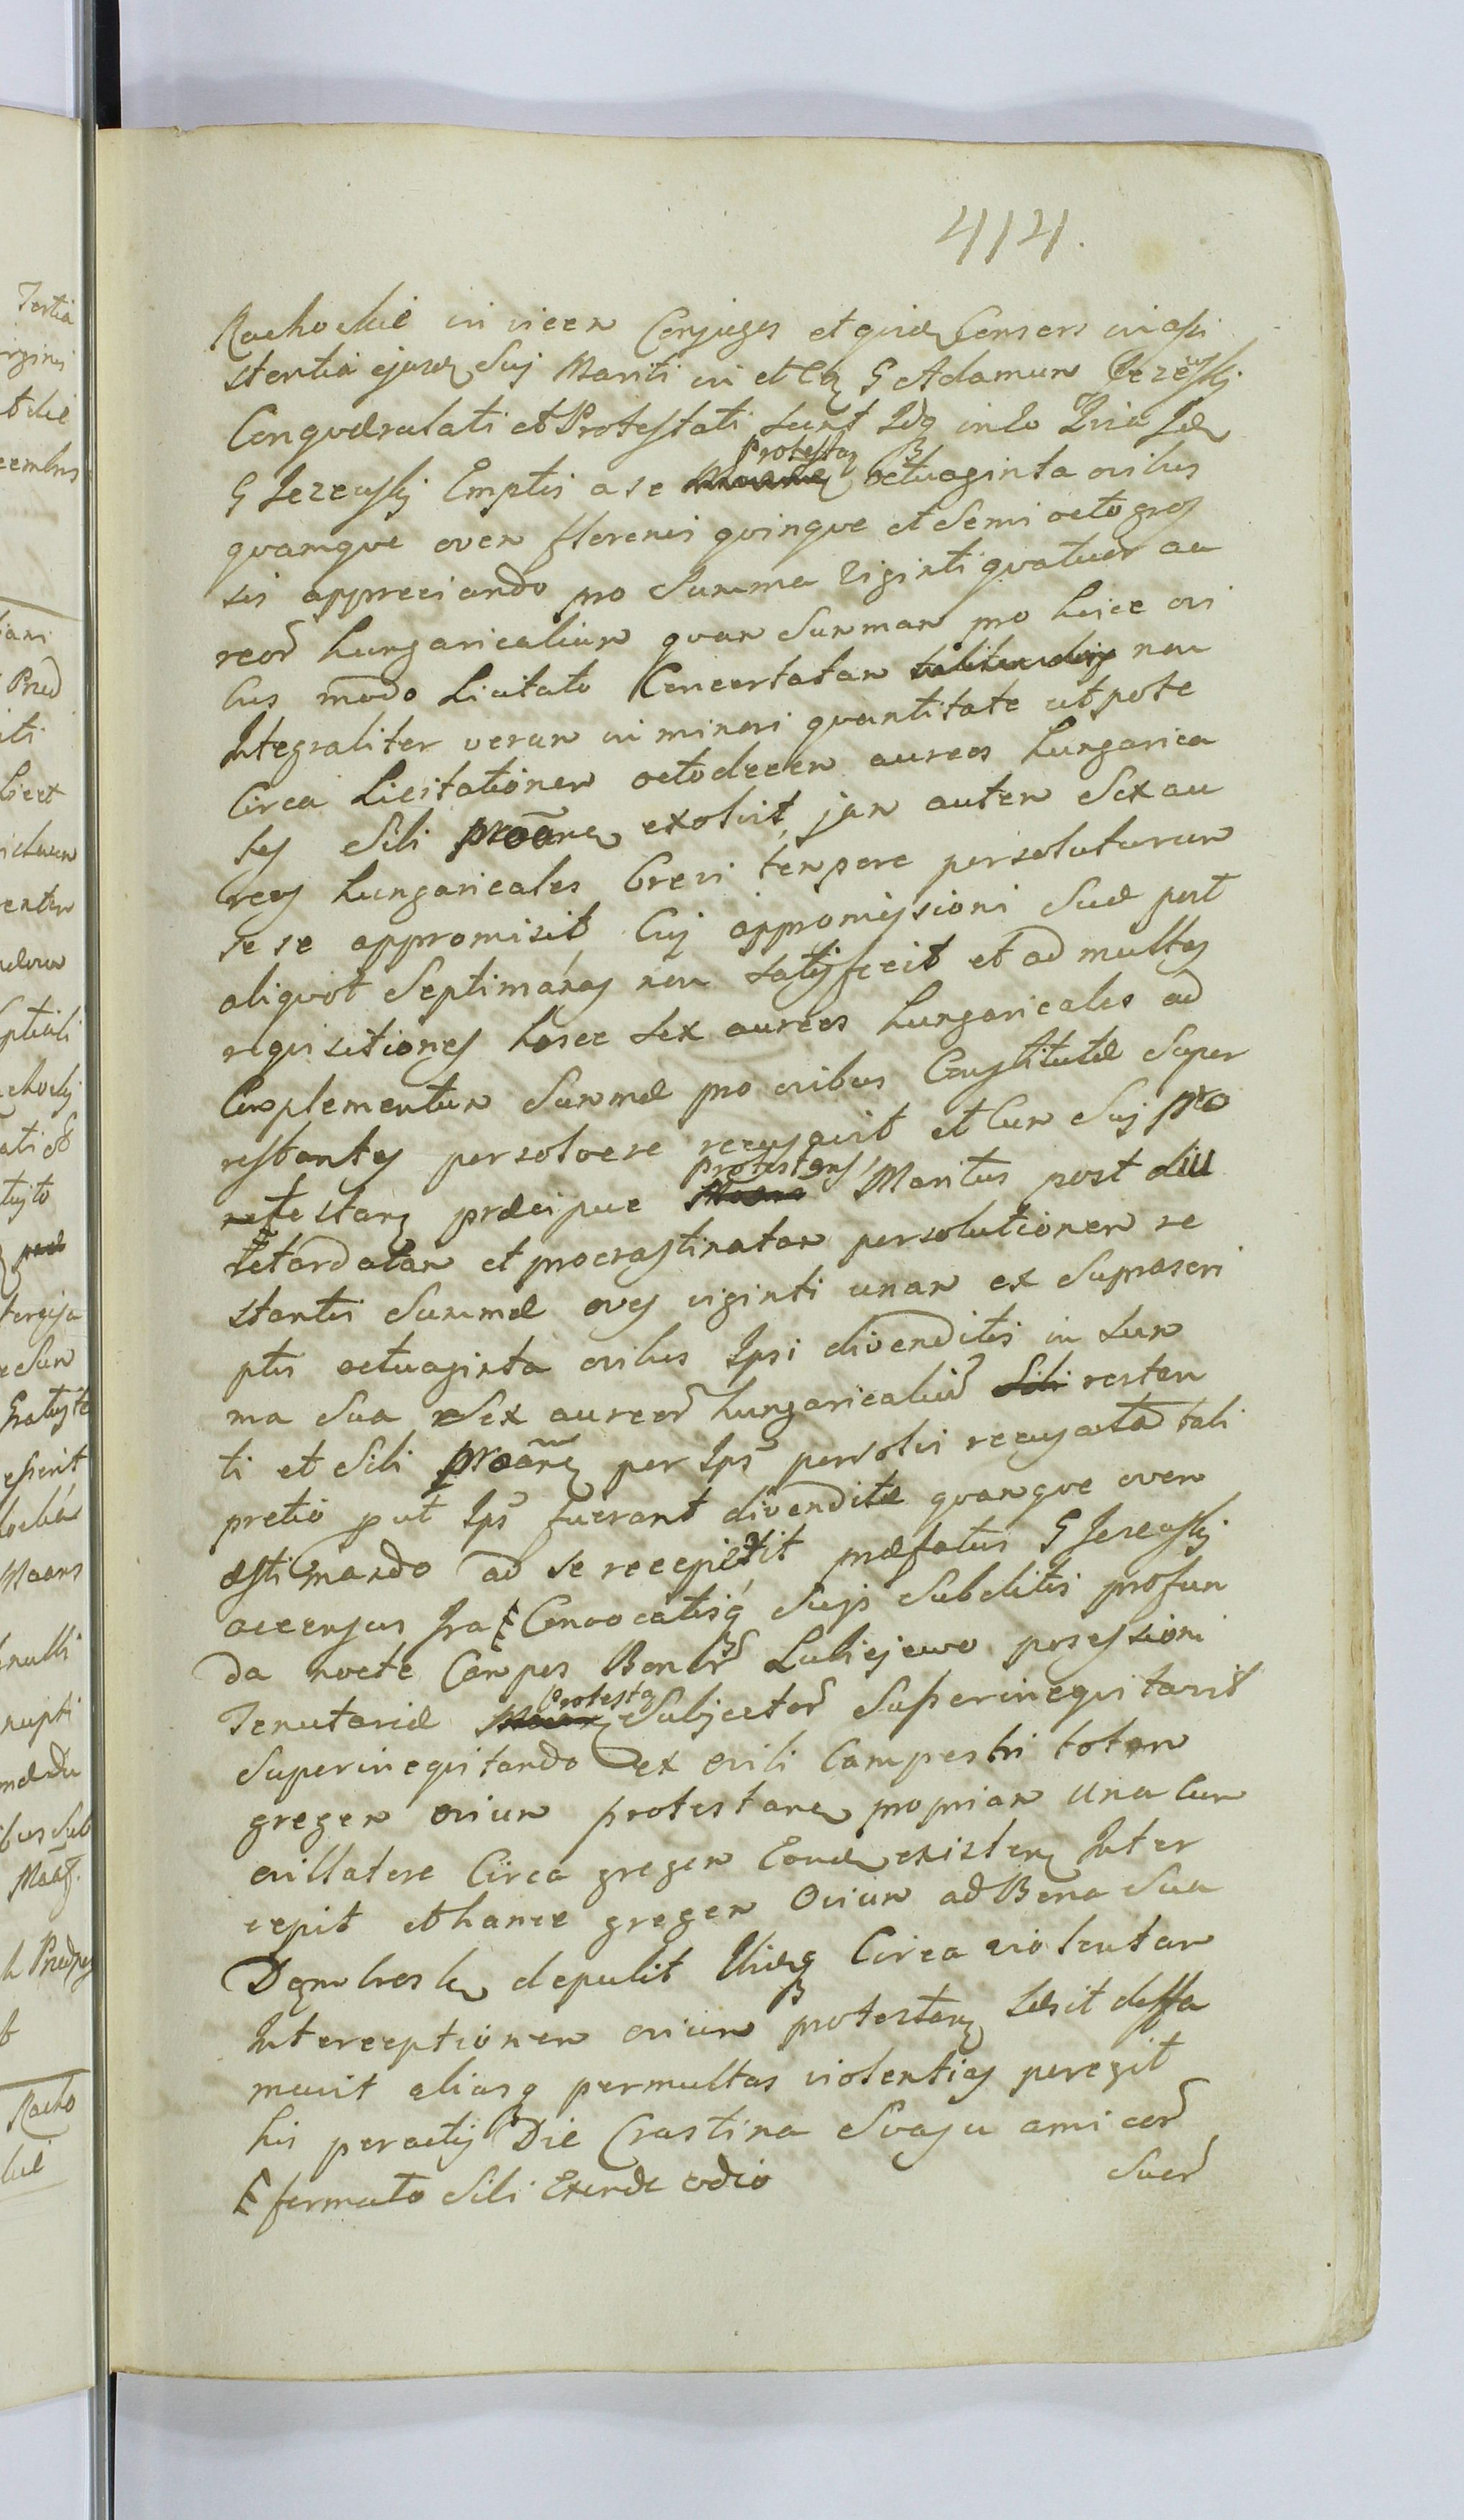 414.
Rachockie in vicem Conjuges et quidem Consors in assi
stentia ejusdem Sui Mariti in et Ctra G Adamum Jezewski
Conquaerulati et Protestati sunt Idq in eo Quia Idem
G Jezewski Emptis a se protestan octuaginta ovibus
quamque ovem florenis quinque et Semi octo gros
sis appreciando pro Summa Viginti quatuor au
reor hungaricalium quam Summam pro hisce ovi
bus modo licitato Concertatam non
Integraliter verum in minori quantitate utpote
Circa Licitationem octodecem aureos hungarica
les Sibi protane exolvit, jam autem Sex au
reos hungaricales brevi tempore persoluturum
se se appromisit, Cuj appromissioni Suae post
aliquot Septimanas non satisfecit et ad multas
requisitiones hosce sex aureos hungaricales ad
Complementum Summae pro ovibus Constitutae Super
restantes persolvere recusavit et Cum Suj pro
testans praecipue protestans Maritus post diu
retardatam et procrastinatam persolutionem re
stantis Summae oves viginti unam ex Suprascri
ptis octuaginta ovibus Ipsi divenditis in Sum
ma Sua Sex aureor hungaricalium Sibi restan
ti et Sibi protane per Ips persolvi recusata tali
pretio put Ips fuerant divenditae quamque ovem
aestimando ad se recepisset praefatus G Jezewski
accensus Ira Convocatisq Suis Subditis profun
da nocte Campos Bonor Lubiejewo possessioni
Tenutariae Protestan Subjector Superinequitavit
Superinequitando ex ovili Campestri totam
gregem ovium protestane propriam Una Cum
ovillatore Circa gregem Eond existen Inter
cepit et hance gregem Ovium ad Bona Sua
Dembrosk depulit Ibidq Circa violentam
Interceptionem ovium protestan laesit deffa
mavit aliasq permultas violentias peregit
his peractis Die Crastina Svasu amicor
Suor
fermato Sibi Exinde odio